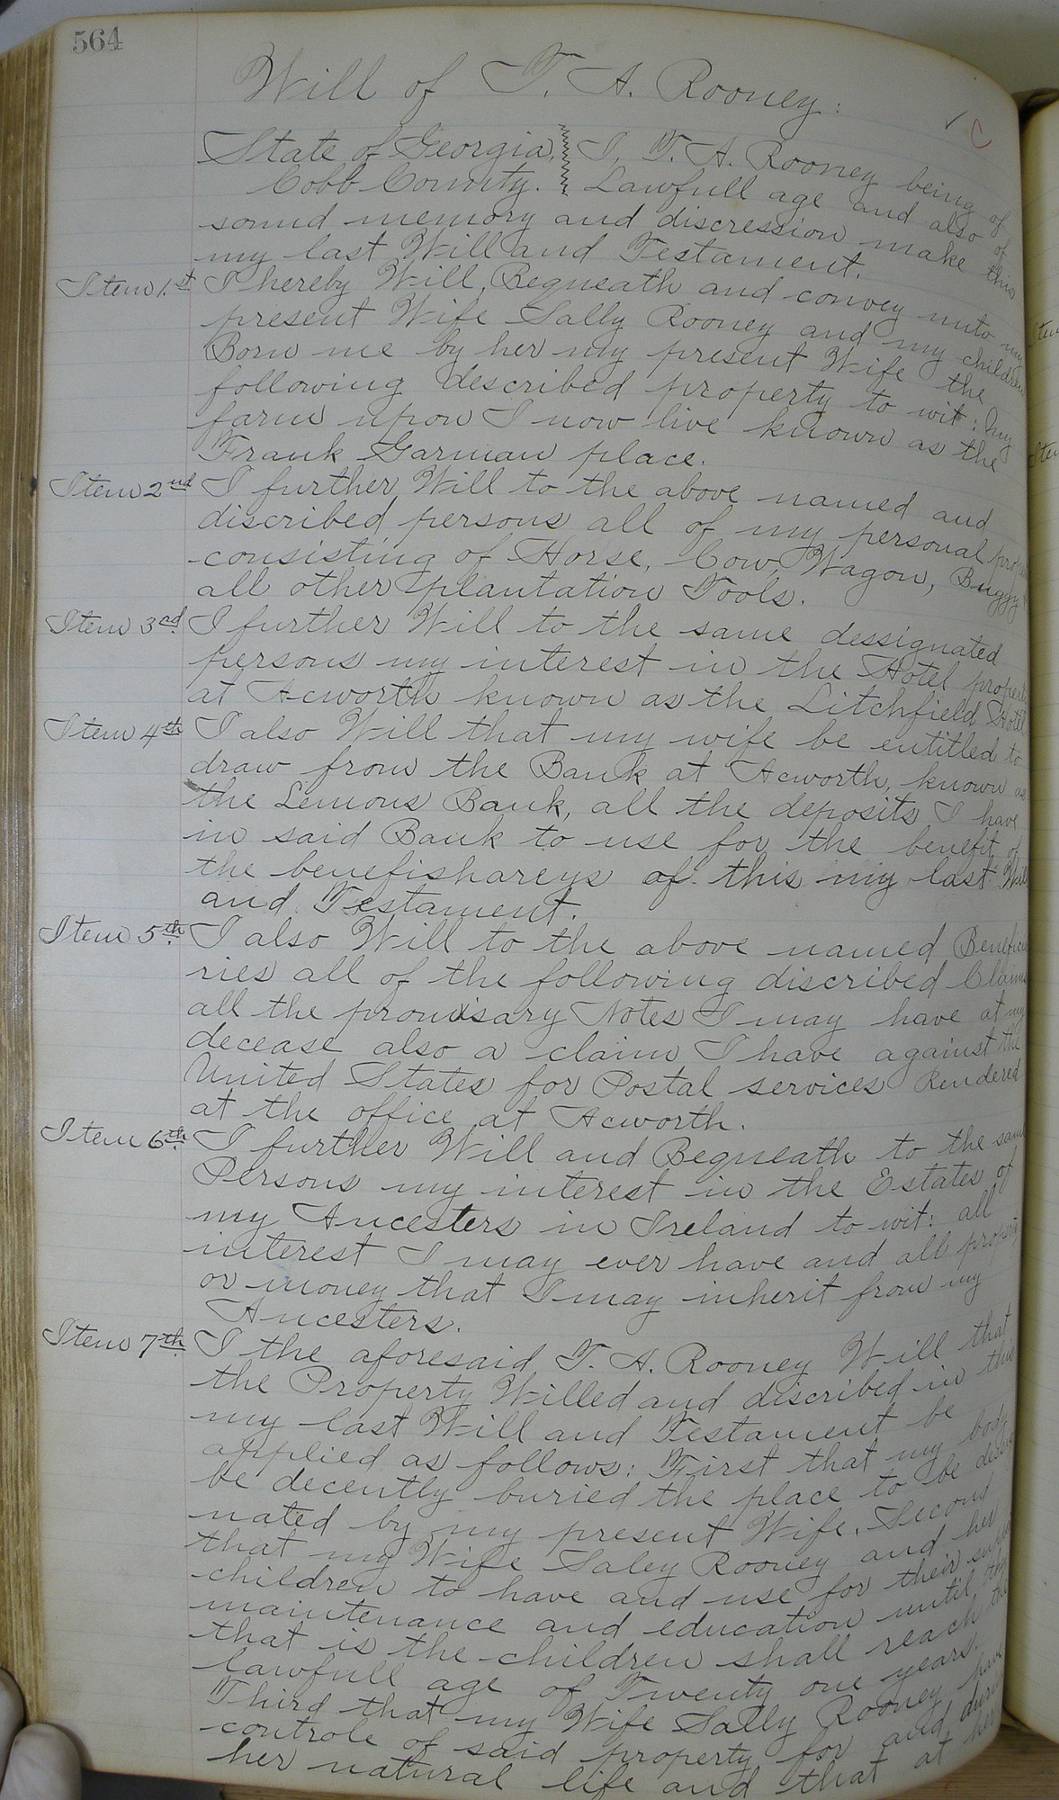 564
Will of T. A. Rooney:
C
State of Georgia, I, T. A. Rooney being of
Cobb County. Lawfull age and also of
sound memory and discression make this
my last Will and Testament.
Item 1.st I hereby Will, Bequeath and convey unto my
present Wife Sally Rooney and my children
Born me by her my present Wife the
following described property to wit: My
farm upon I now live known as the
Frank Garman place.
Item 2nd I further Will to the above named and
discribed persons all of my personal
consisting of Horse, Cow, Wagon, Buggy &
all other plantation Tools.
Item 3rd I further Will to the same dessignated
persons my interest in the Hotel property
at Acworth known as the Litchfield Hotel
Item 4th I also Will that my wife be entitled to
draw from the Bank at Acworth, known as
the Lemons Bank, all the deposits I have
in said Bank to use for the benefit of
the benefishareys of this my last Will
and Testament.
Item 5th I also Will to the above named Beneficia
ries all of the following discribed Claims
all the promisary Notes I may have at my
decease also a claim I have against the
United States for Postal services Rendered
at the office at Acworth.
Item 6th I further Will and Bequeath to the same
Persons my interest in the Estates of
my Ancesters in Ireland to wit: all
interest I may ever have and all property
or money that I may inherit from my
Ancesters.
Item 7th I the aforesaid T. A. Rooney Will that
the Property Willed and discribed in this
my last Will and Testament be
applied as follows: First that my body
be decently buried the place to be desig
nated by my present Wife. Second
that my Wife Saley Rooney and her
children to have and use for their
maintenance and education until they
that is the children shall reach the
lawfull age of Twenty one years.
Third that my Wife Sally Rooney have
controle of said property for and during
her natural life and that at her